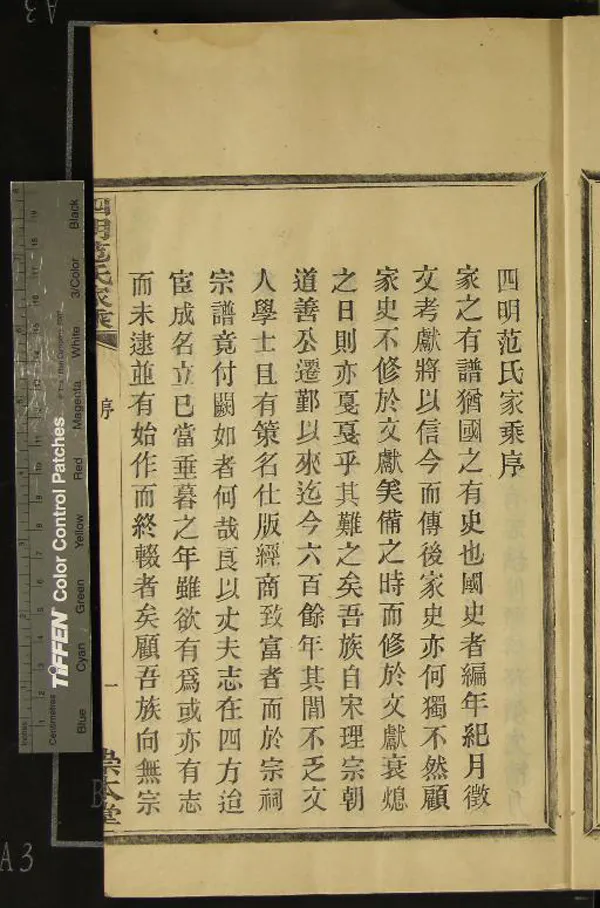 四明范氏家乘序
家之有譜猶國之有史也國史者編年紀月徵
文考獻將以信今而傳後家史亦何獨不然顧
家史不修於文獻美備之時而修於文獻衰熄
之日則亦戛戛乎其難之矣吾族自宋理宗朝
道善公遷鄞以來迄今六百餘年其閒不乏文
人學士且有策名仕版經商致富者而於宗祠
宗譜竟付闕如者何哉良以丈夫志在四方迨
宦成名立已當垂暮之年雖欲有爲或亦有志
而未逮並有始作而終輟者矣顧吾族向無宗
四明范氏家乘
序
一
崇本堂
TIFFEN Color Control Patches
Blue
Cyan
Green
Yellow
Red
Magenta
White
3/Color
Black
Inches
Centimetres
A3
A3
B